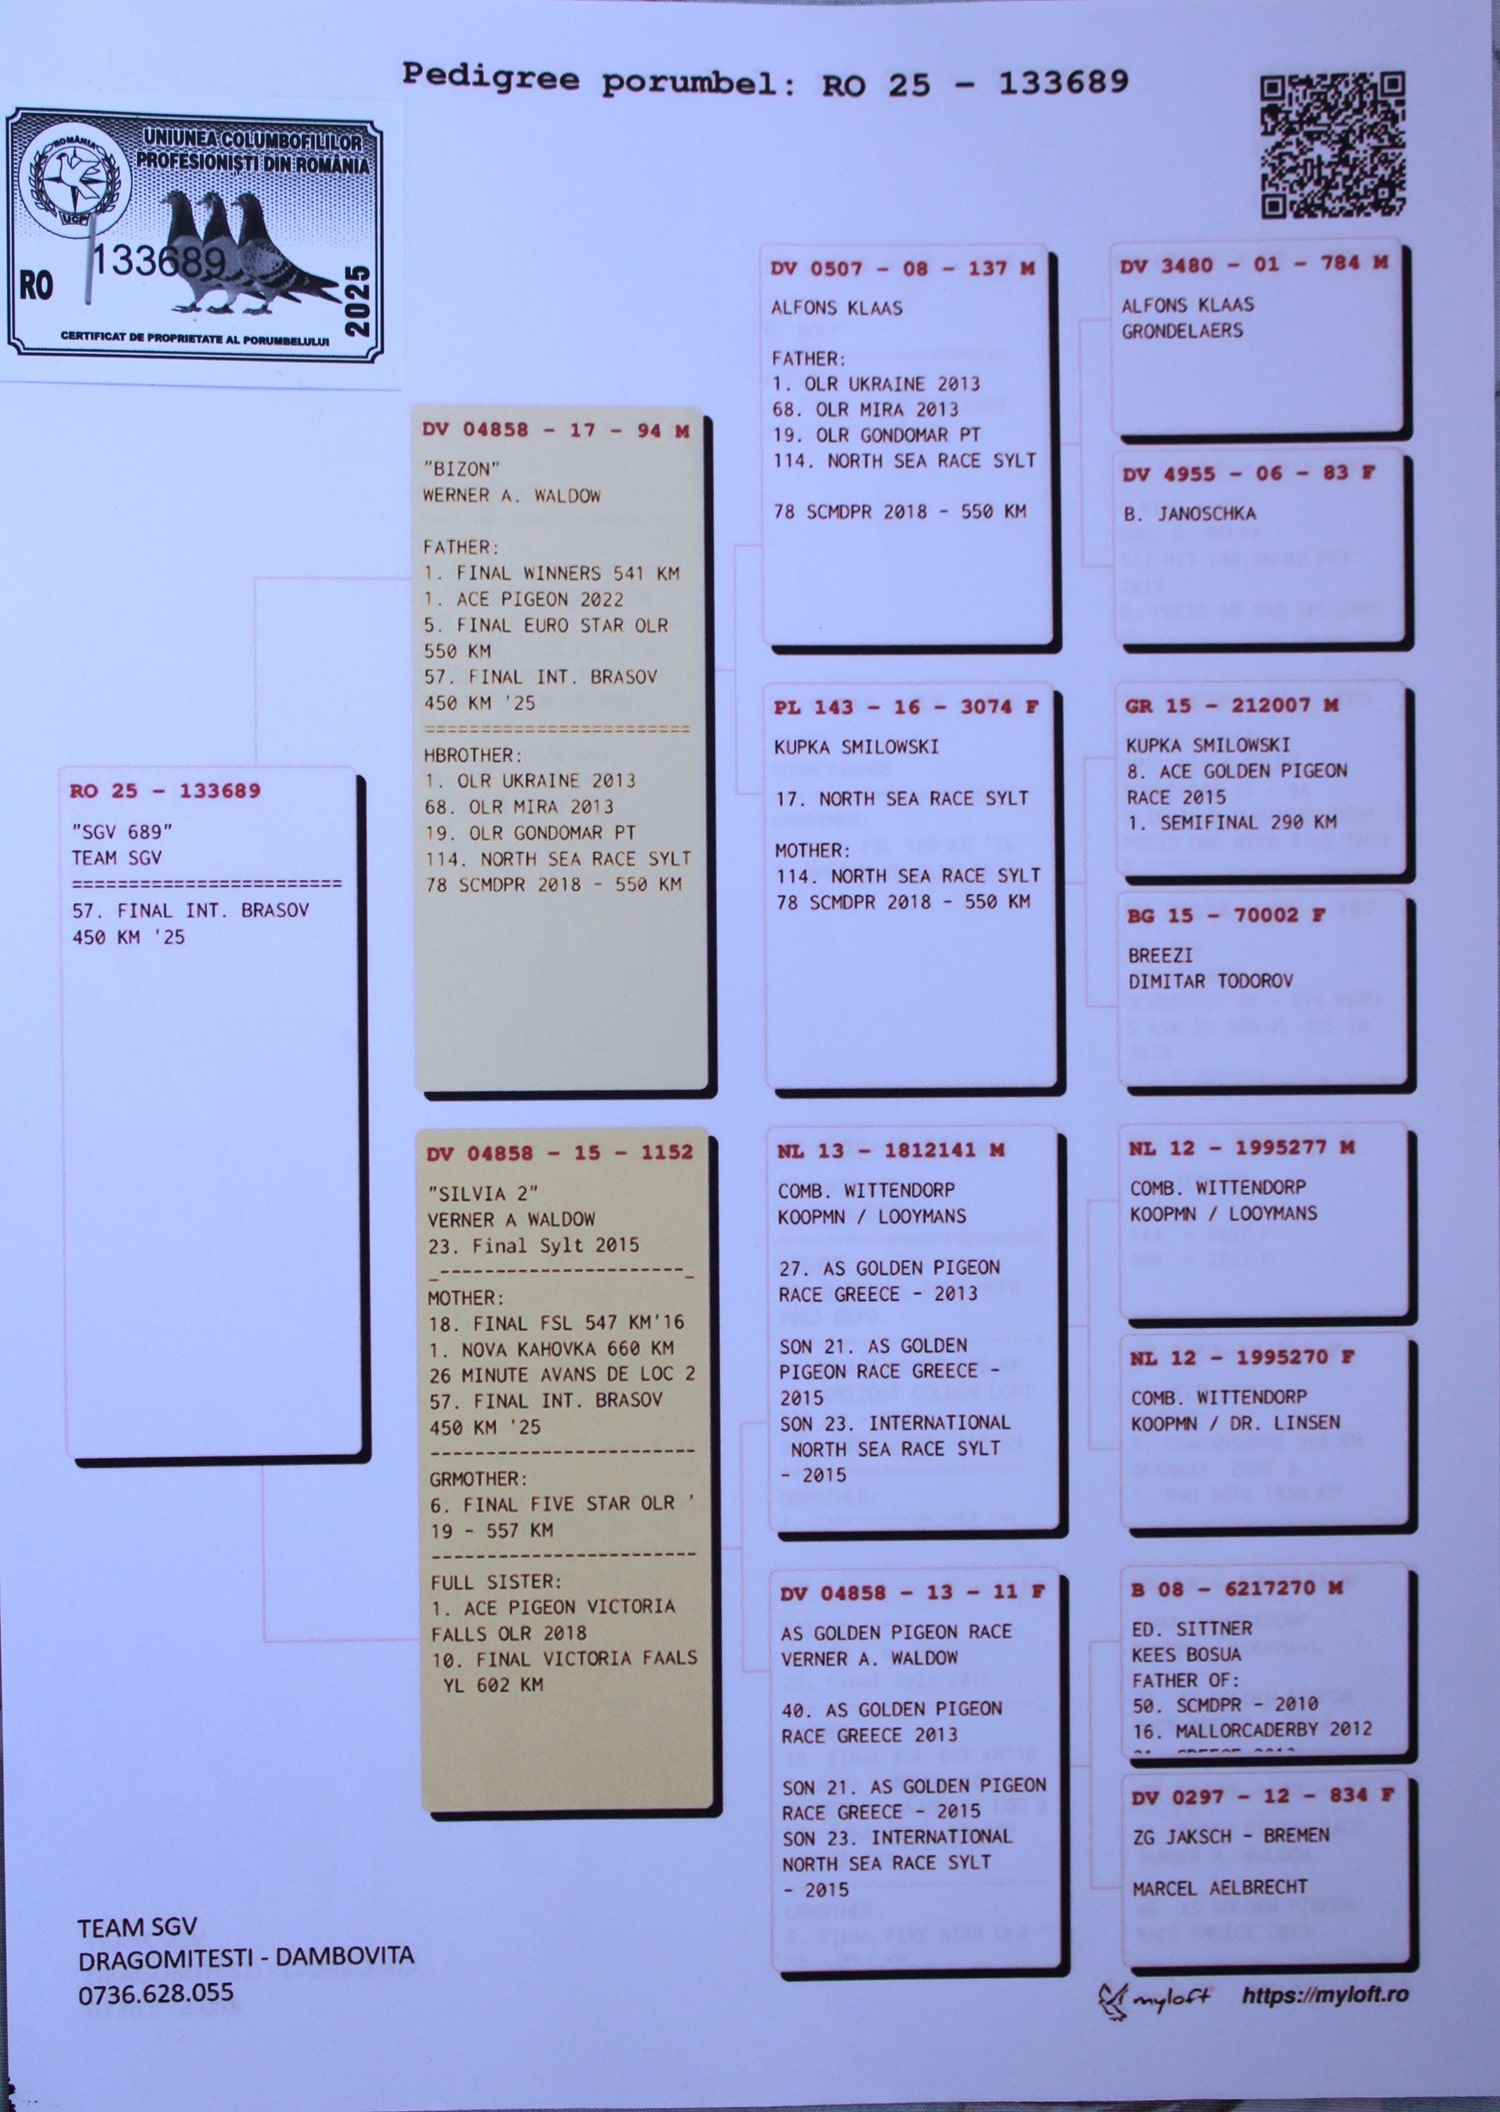 Pedigree porumbel: RO 25 - 133689
ROMÂNIA
UCPR
UNIUNEA COLUMBOFILILOR
PROFESIONIȘTI DIN ROMÂNIA
133689
RO
2025
CERTIFICAT DE PROPRIETATE AL PORUMBELULUI
RO 25 - 133689
"SGV 689"
TEAM SGV
========================
57. FINAL INT. BRASOV
450 KM '25
DV 04858 - 17 - 94 M
"BIZON"
WERNER A. WALDOW
FATHER:
1. FINAL WINNERS 541 KM
1. ACE PIGEON 2022
5. FINAL EURO STAR OLR
550 KM
57. FINAL INT. BRASOV
450 KM '25
========================
HBROTHER:
1. OLR UKRAINE 2013
68. OLR MIRA 2013
19. OLR GONDOMAR PT
114. NORTH SEA RACE SYLT
78 SCMDPR 2018 - 550 KM
DV 04858 - 15 - 1152
"SILVIA 2"
VERNER A WALDOW
23. Final Sylt 2015
_----------------------_
MOTHER:
18. FINAL FSL 547 KM'16
1. NOVA KAHOVKA 660 KM
26 MINUTE AVANS DE LOC 2
57. FINAL INT. BRASOV
450 KM '25
------------------------
GRMOTHER:
6. FINAL FIVE STAR OLR '
19 - 557 KM
------------------------
FULL SISTER:
1. ACE PIGEON VICTORIA
FALLS OLR 2018
10. FINAL VICTORIA FAALS
YL 602 KM
DV 0507 - 08 - 137 M
ALFONS KLAAS
FATHER:
1. OLR UKRAINE 2013
68. OLR MIRA 2013
19. OLR GONDOMAR PT
114. NORTH SEA RACE SYLT
78 SCMDPR 2018 - 550 KM
PL 143 - 16 - 3074 F
KUPKA SMILOWSKI
17. NORTH SEA RACE SYLT
MOTHER:
114. NORTH SEA RACE SYLT
78 SCMDPR 2018 - 550 KM
NL 13 - 1812141 M
COMB. WITTENDORP
KOOPMN / LOOYMANS
27. AS GOLDEN PIGEON
RACE GREECE - 2013
SON 21. AS GOLDEN
PIGEON RACE GREECE -
2015
SON 23. INTERNATIONAL
NORTH SEA RACE SYLT
- 2015
DV 04858 - 13 - 11 F
AS GOLDEN PIGEON RACE
VERNER A. WALDOW
40. AS GOLDEN PIGEON
RACE GREECE 2013
SON 21. AS GOLDEN PIGEON
RACE GREECE - 2015
SON 23. INTERNATIONAL
NORTH SEA RACE SYLT
- 2015
DV 3480 - 01 - 784 M
ALFONS KLAAS
GRONDELAERS
DV 4955 - 06 - 83 F
B. JANOSCHKA
GR 15 - 212007 M
KUPKA SMILOWSKI
8. ACE GOLDEN PIGEON
RACE 2015
1. SEMIFINAL 290 KM
BG 15 - 70002 F
BREEZI
DIMITAR TODOROV
NL 12 - 1995277 M
COMB. WITTENDORP
KOOPMN / LOOYMANS
NL 12 - 1995270 F
COMB. WITTENDORP
KOOPMN / DR. LINSEN
B 08 - 6217270 M
ED. SITTNER
KEES BOSUA
FATHER OF:
50. SCMDPR - 2010
16. MALLORCADERBY 2012
DV 0297 - 12 - 834 F
ZG JAKSCH - BREMEN
MARCEL AELBRECHT
TEAM SGV
DRAGOMITESTI - DAMBOVITA
0736.628.055
myloft
https://myloft.ro